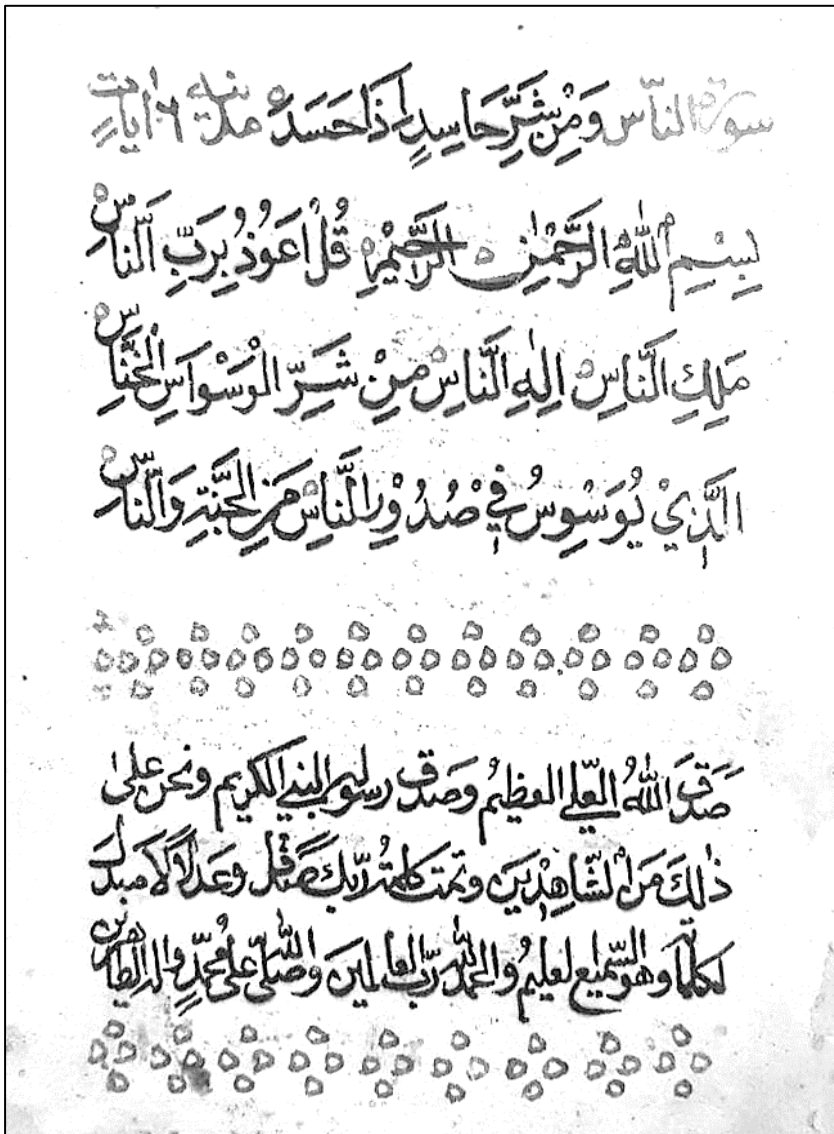 سورة الناس وَمِنْ شَرِّ حَاسِدٍ اِذَا حَسَدَ مدنية ٦ اٰيات
بِسْمِ اللّٰهِ الرَّحْمٰنِ الرَّحِيْمِ قُلْ اَعُوْذُ بِرَبِّ النَّاسِ
مَلِكِ النَّاسِ اِلٰهِ النَّاسِ مِنْ شَرِّ الْوَسْوَاسِ الْخَنَّاسِ
الَّذِيْ يُوَسْوِسُ فِيْ صُدُوْرِ النَّاسِ مِنَ الْجِنَّةِ وَالنَّاسِ
صَدَقَ اللّٰهُ العَلِي العظيمُ وَصَدَقَ رسوله النبي الكريم ونحن على
ذٰلِكَ مَنَ الشّاهِدِيَن وتمت كلمتُ رَبك صدقا وَعَدلًا لَا مبدلَ
لكلماته وهو السّميع العليمُ والحمد لله رَبّ العالمينَ وصَلّى الله على مُحمّدٍ واٰله الطاهرين